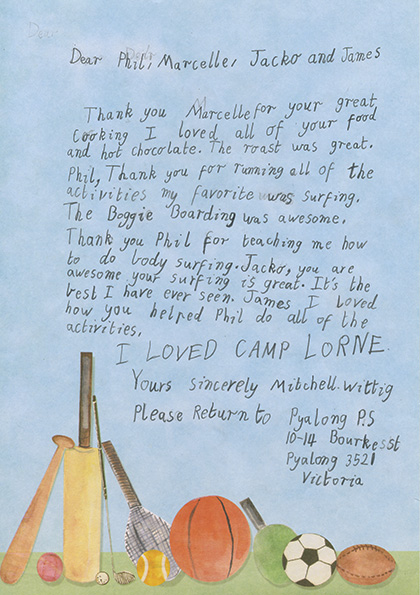 Dear
Dear Phil, Marcelle, Jacko and James
Thank you Marcelle for your great
Cooking I loved all of your food
and hot chocolate. The roast was great.
Phil, Thank you for running all of the
activities my favorite was surfing.
The Boggie Boarding was awesome.
Thank you Phil for teaching me how
to do body surfing. Jacko, you are
awesome your surfing is great. It's the
best I have ever seen. James I loved
how you helped Phil do all of the
activities.
I LOVED CAMP LORNE.
Yours Sincerely Mitchell. Wittig
Please Return to Pyalong P.S
10-14 Bourkesst
Pyalong 3521
Victoria